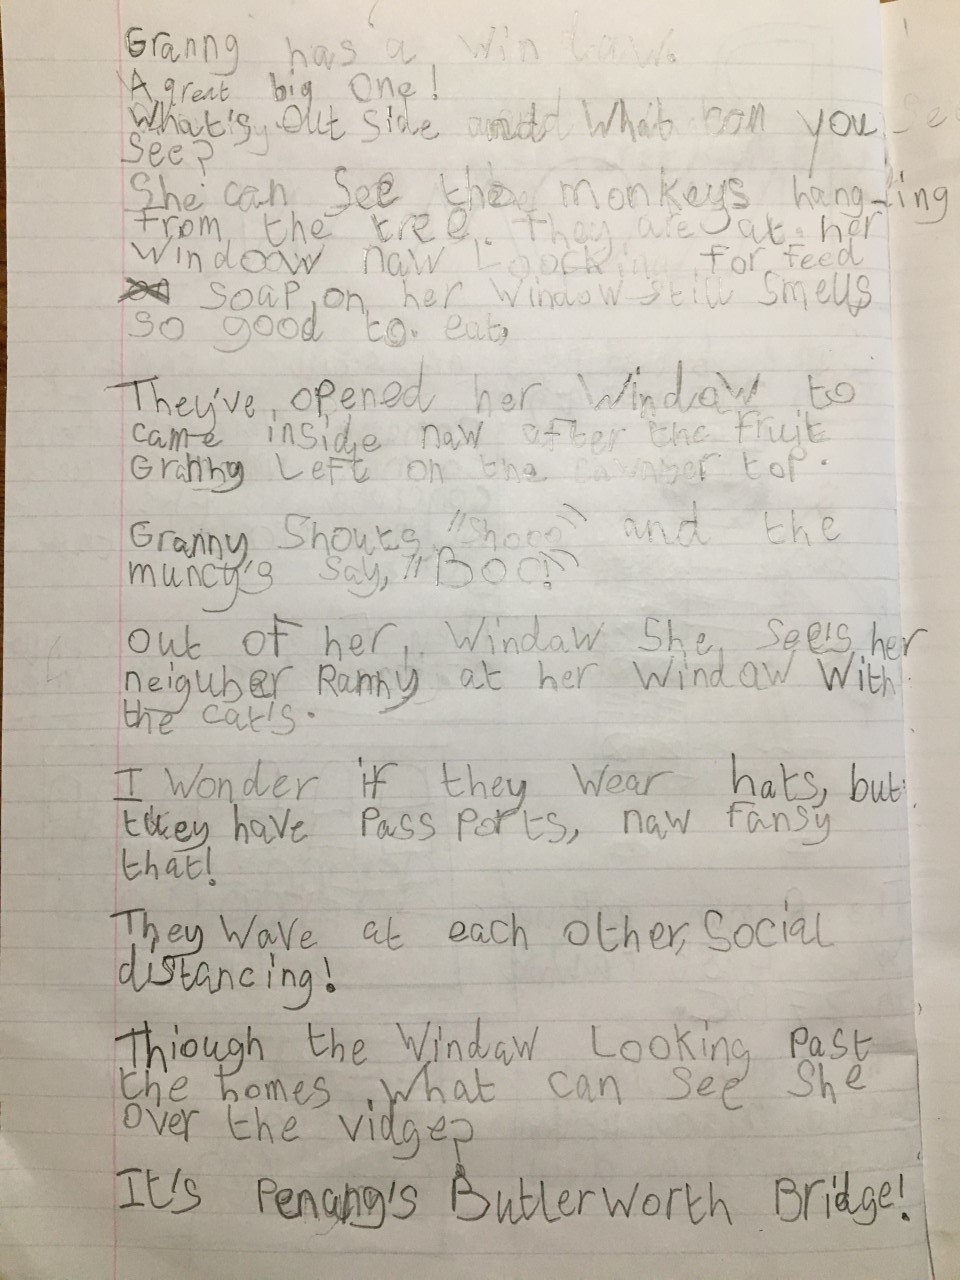 Granny has a windaw.
A great big One!
What's out side and What can you
See?
She can See the monkeys hang-ing
from the tree. They are at her
Windoaw naw Loocking for feed
soap on her windowstill smells
so good to eat,
They've opened her Windaw to
came inside naw after the fruit
Granny Left on the top.
Granny Shouts "Shooo" and the
muncy's say, "Boo!"
Out of her, Windaw She, sees her
neiguber Ranny at her Windaw With
the cat's.
I Wonder if they Wear hats, but
they have Pass ports, naw fansy
that!
They Wave at each other, Social
distancing!
Thiough the Windaw Looking Past
the homes, What can See She
over the vidge?
It's Penang's Butlerworth Bridge!